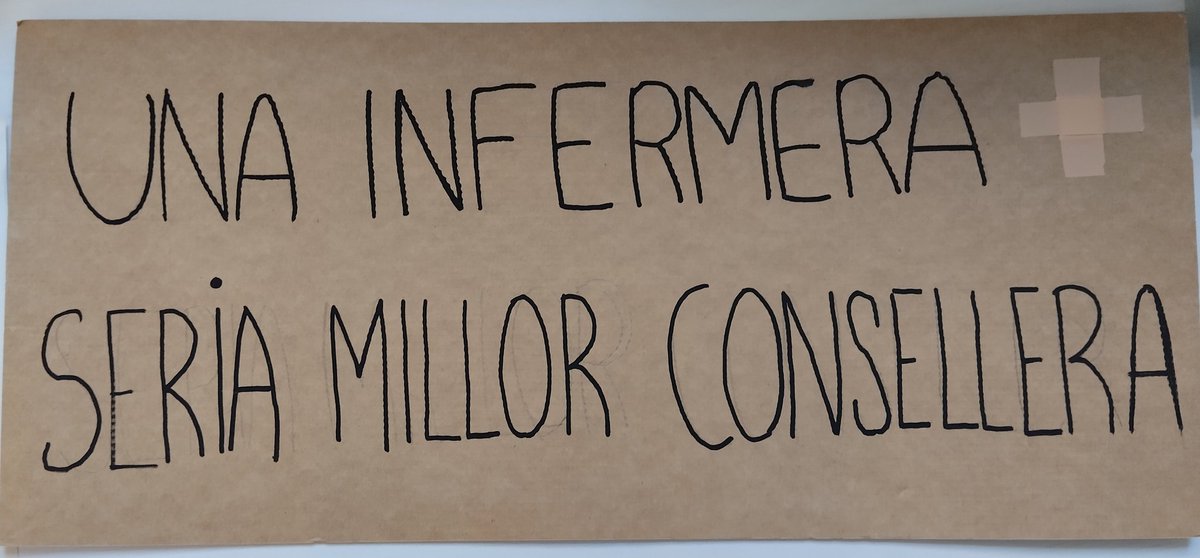 UNA INFERMERA
SERiA MILLOR CONSELLERA